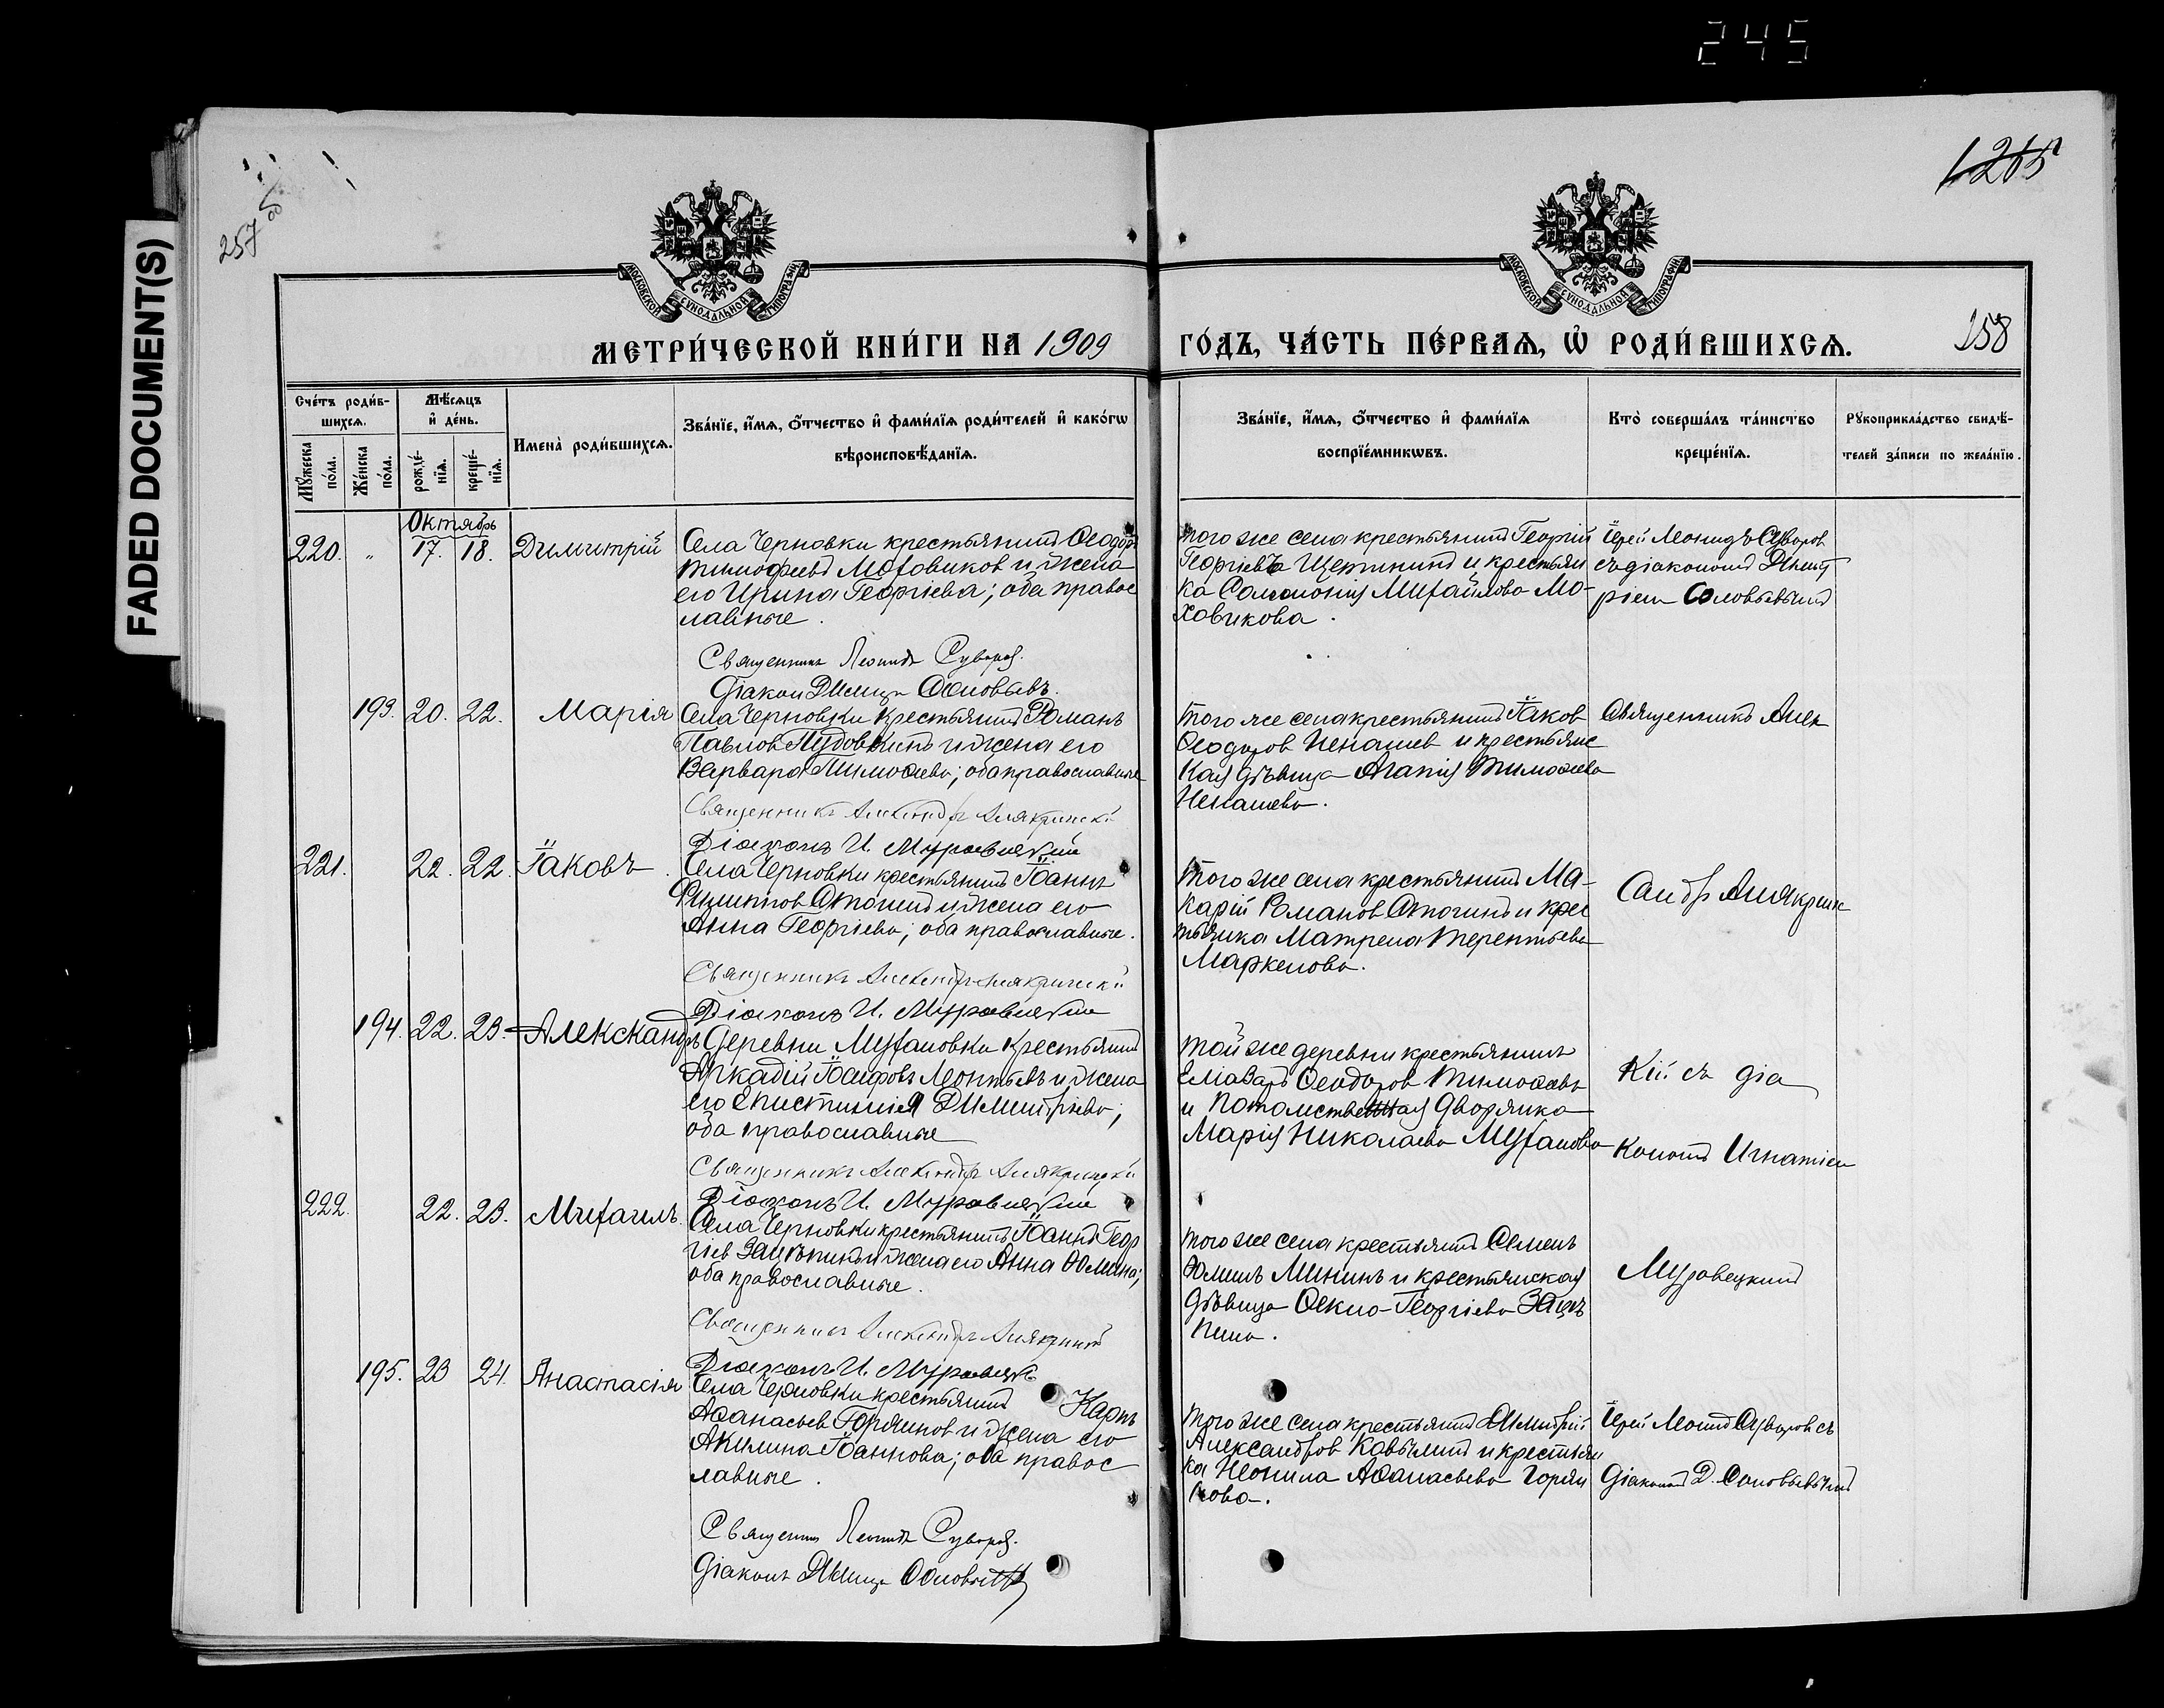 245
FADED DOCUMENT(S)
257
1265
МОСКОВСКОЙ СѴНОДАЛЬНОЙ ТИПОГРАФІИ
МОСКОВСКОЙ СѴНОДАЛЬНОЙ ТИПОГРАФІИ
МЕТРИ́ЧЕСКОЙ КНИ́ГИ НА 1909 ГО́ДЪ, ЧА́СТЬ ПЕ́РВАѦ, Ѡ҆ РОДИ́ВШИХСѦ.
258
Сче́тъ роди́в-
шихсѧ.
Мѣ́сѧцъ
и҆ де́нь.
Мꙋ́жеска по́ла.
Же́нска по́ла.
рожде́-нїѧ.
креще́-нїѧ.
Имена̀ роди́вшихсѧ.
Зва́нїе, и҆́мѧ, ѻ҆́тчество и҆ фами́лїѧ роди́телей и҆ како́гѡ
вѣроисповѣ́данїѧ.
Зва́нїе, и҆́мѧ, ѻ҆́тчество и҆ фами́лїѧ
воспрїе́мникѡвъ.
Кто̀ соверша́лъ та́инство
креще́нїѧ.
Рꙋкоприкла́дство свидѣ́-
телей за́писи по жела́нїю.
Октябрь
220. „ 17. 18. Димитрій
Села Черновки крестьянинъ Ѳеодоръ
Тимофеевъ Моховиков и жена
его Ирина Георгіева; оба правос
лавные.
Священникъ Леонидъ Суворов.
Діакон Димитр Соловьевъ.
того же села крестьянинъ Георгій
Георгіевъ Щетининъ и крестьян
ка Саломонія Михайлова Мо-
ховикова.
Іерей Леонидъ Суворов
съ діакономъ Димит
ріем Соловьевымъ
193. 20. 22. Марія
Села Черновки крестьянинъ Романъ
Павлов Пудовкинъ и жена его
Варвара Тимоѳева; оба православные
Священникъ Александръ Алякринскій
Діаконъ И. Муравецкій
Того же села крестьянинъ Іаков
Ѳеодоров Ненашев и крестьянс
кая дѣвица Агапія Тимоѳеева
Ненашева.
Священникъ Алек
221. 22. 22. Іаковъ
Села Черновки крестьянинъ Іоаннъ
Филиппов Атогинъ и жена его
Анна Георгіева; оба православные.
Священникъ Александръ Алякринскій
Діаконъ И. Муравецкій
Того же села крестьянинъ Ма-
карій Романов Атогинъ и крес
тьянка Матрена Терентьева
Маркелова.
сандр Алякринс
194. 22. 23. Алекскандръ
Деревни Мухановки крестьянинъ
Аркадій Леонтьевъ и жена
его Епистимія Димитріева;
оба православные
Священникъ Александръ Алякринскій
Діаконъ И. Муравецкій
Той же деревни крестьянинъ
Еліазаръ Ѳеодоров Тимоѳеевъ
и потомственная дворянка
Марія Николаева Муханова
кій съ діа
кономъ Игнатіем
222. 22. 23. Михаилъ.
Села Черновки крестьянинъ Іоаннъ Геор
гіев Зацѣпинъ и жена его Анна Ѳомина;
оба православные.
Священникъ Александръ Алякринскій
Діаконъ И. Муравецк
того же села крестьянинъ Семенъ
Ѳоминъ Мининъ и крестьянская
дѣвица Ѳекла Георгіева Зацѣ
пина.
Муравецкимъ
195. 23 24. Анастасія
Села Черновки крестьянинъ Карпъ
Аѳанасьев Горяинов и жена его
Акилина Іоаннова; оба правос
лавные.
Священник Леонидъ Суворов.
Діаконъ Димитр Соловьевъ
Того же села крестьянинъ Димитрій
Александров Ковылинъ и крестьян
ка Неонила Аѳанасьева Горяи
нова.
Іерей Леонид Суворов съ
діакономъ Д. Соловьевымъ